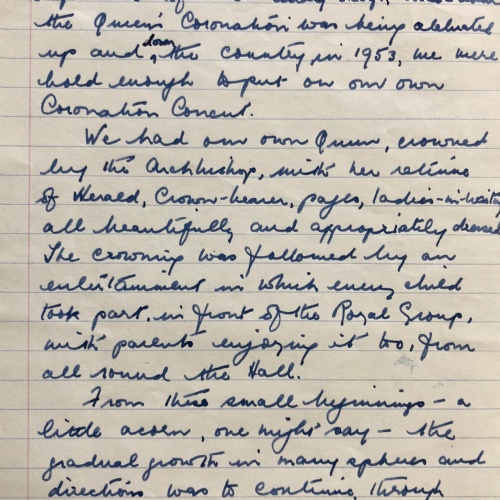 the Queen's Coronation was being celebrated
up and down, the country, in 1953, we were
bold enough to put on our own
Coronation Concert.
We had our own Queen, crowned
by the Archbishop, with her retinue
of Herald, Crown-bearer, pages, ladies-in-waiting
all beautifully and appropriately dressed.
The crowning was followed by an
entertainment in which every child
took part, in front of the Royal Group,
with parents enjoying it too, from
all round the Hall.
From these small beginnings – a
little acorn, one might say – the
gradual growth in many spheres and
directions was to continue through